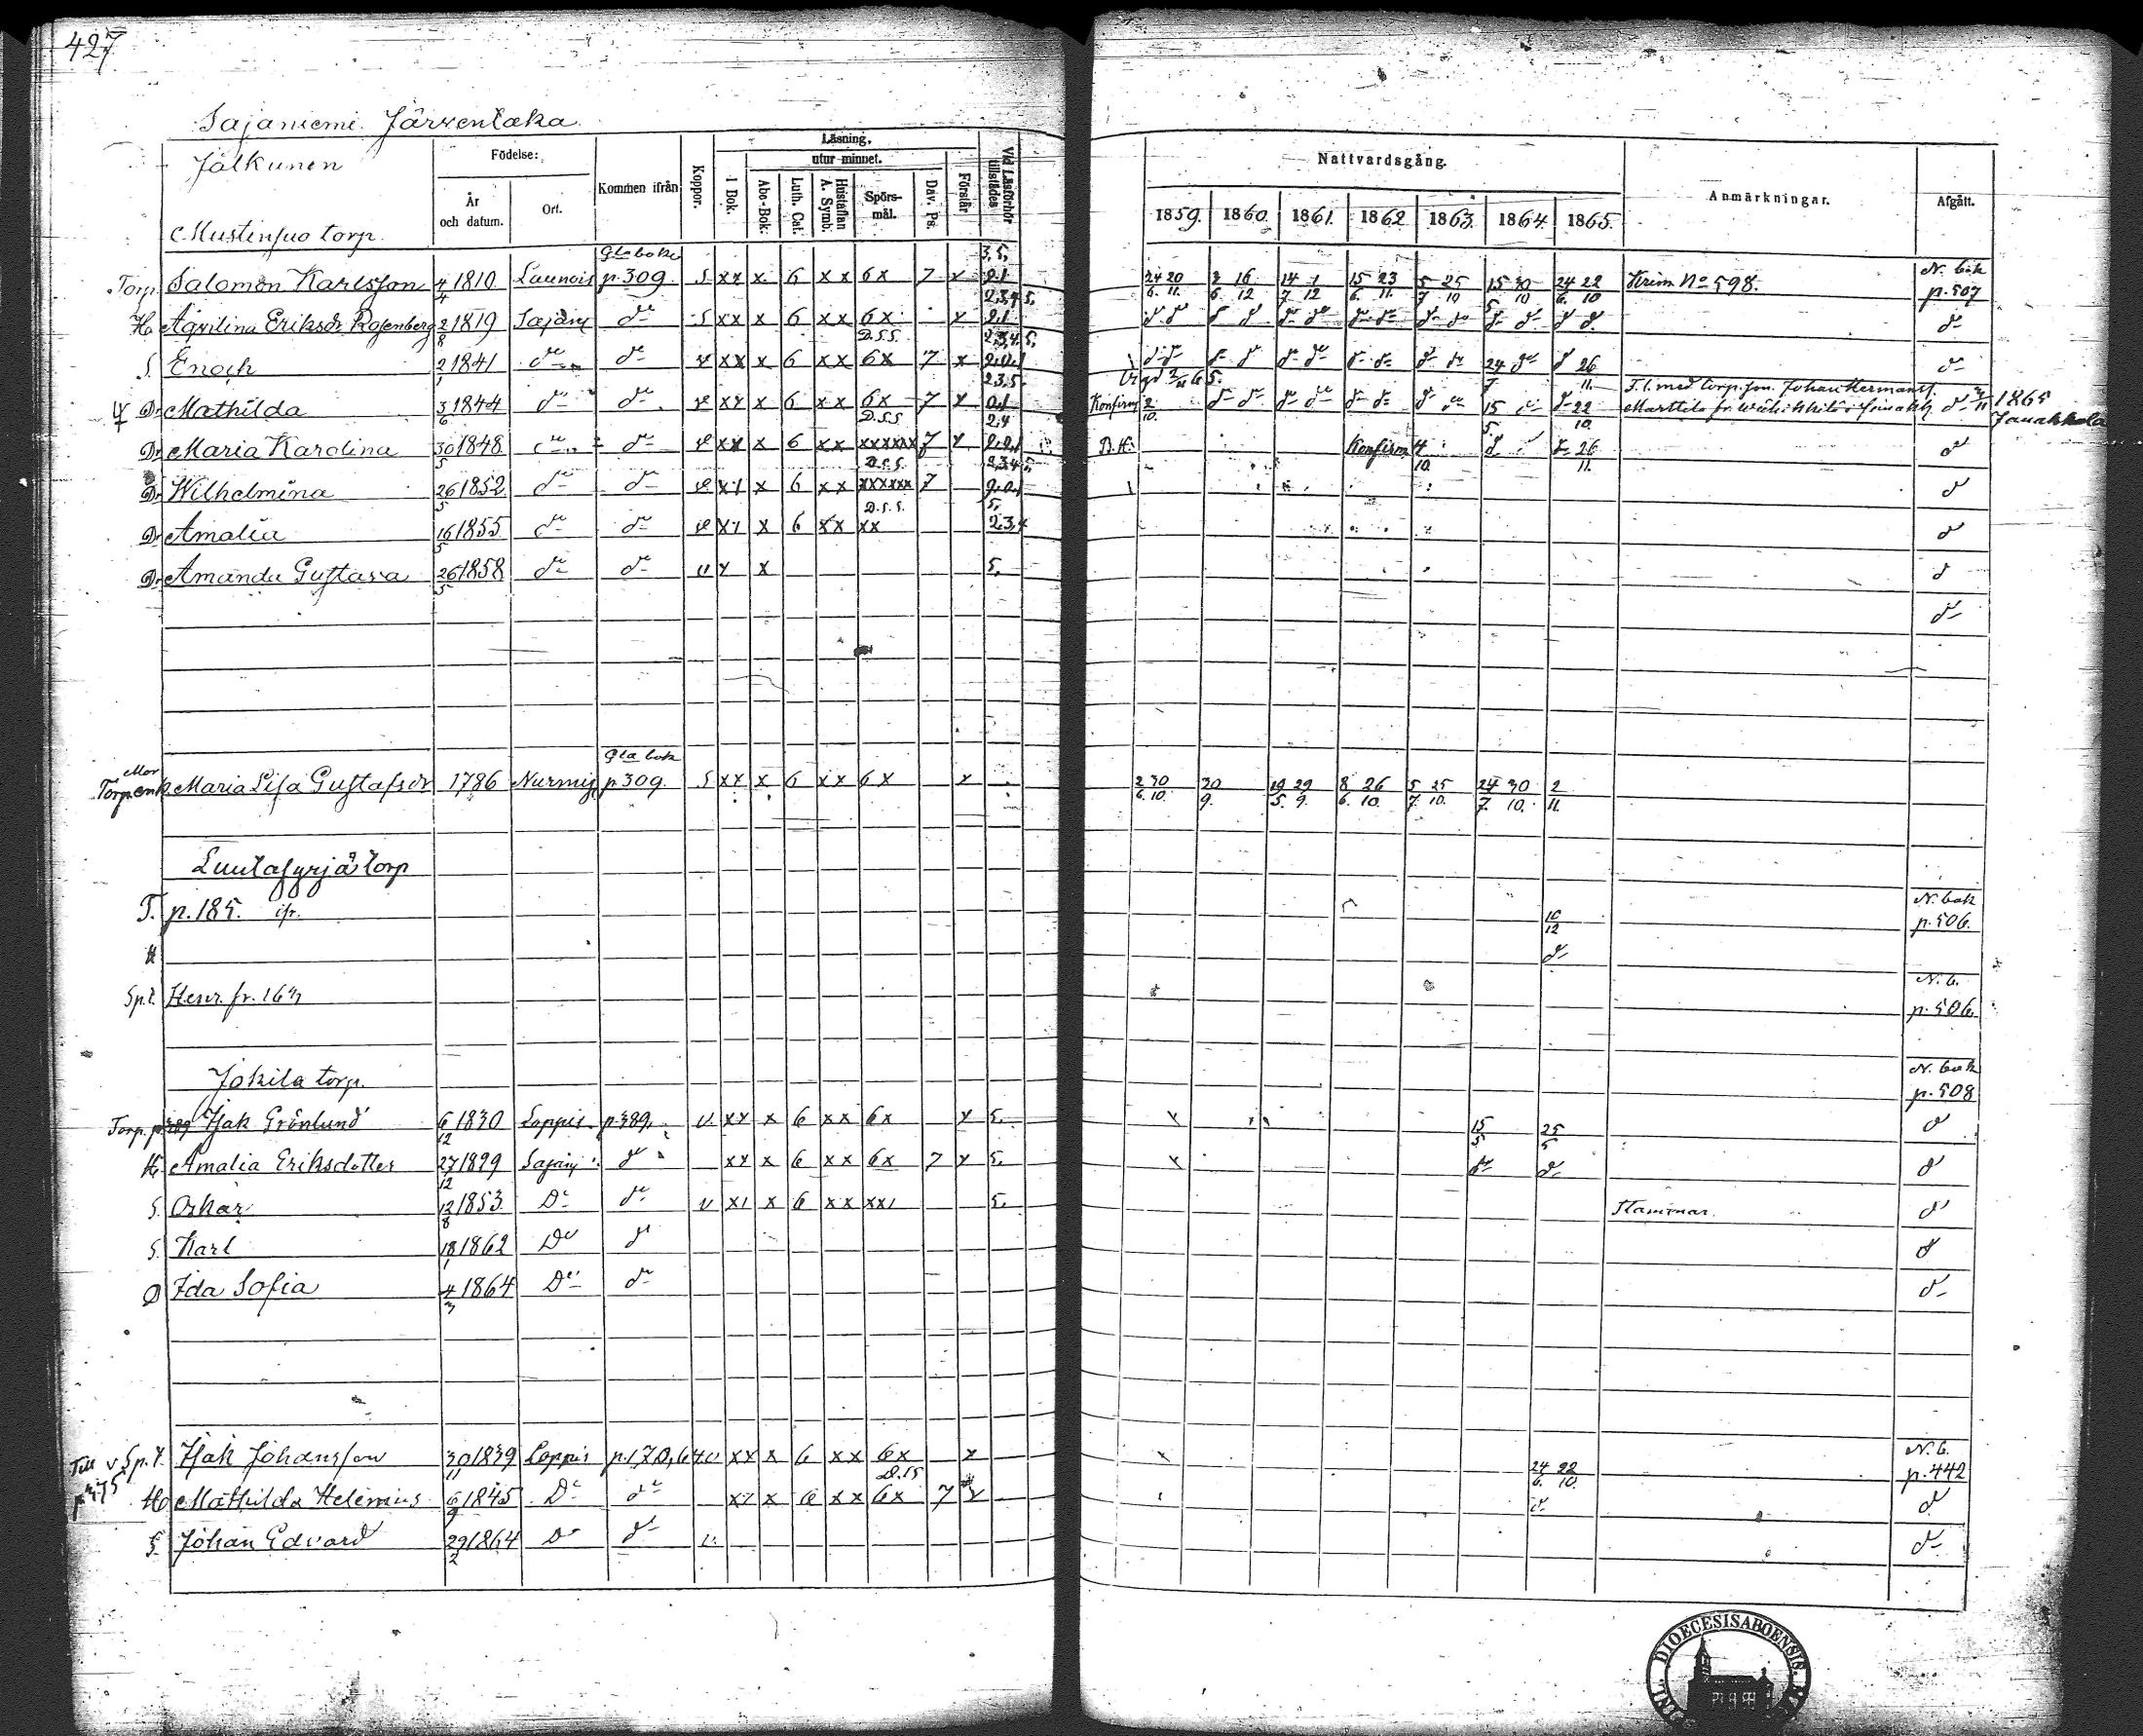 427
Sajaniemi Järventaka
Jälkunen
Mustinsuo torp
Födelse:
År och datum.
Ort.
Kommen ifrån
Koppor.
Läsning,
i Bok.
utur minnet.
Abc-Bok.
Luth. Cat.
Hustaflan A. Symb.
Spörs-mål.
Dav. Ps.
Förstår
Vid Läsförhör tillstädes
Nattvardsgång.
1859. 1860. 1861. 1862 1863. 1864. 1865.
Anmärkningar.
Afgått.
Gla boken
3,5,
Torp. Salomon Karlsson 4/4 1810 Launois p.309. S xx x 6 xx 6x 7 x 2.1 24/6 20/11 3/6 16/12 14/7 1/12 15/6 23/11 5/7 25/10 15/5 30/10 24/6 22/10 Krim. No 598. N. bok p.507
2,3,4,5,
Ho Aqvilina Eriksdr Rosenberg 2/8 1819 Sajan do S xx x 6 xx 6x x 2.1 do
D.S.S. 2,3,4,5,
S. Enoch 2/1 1841 do do v xx x 6 xx 6x 7 x 2.0.1 24/7 do do 26/11 do
2.3.5.
Dr Mathilda 3/6 1844 do do v xx x 6 xx 6x 7 x 0.1 Konfirm 2/10. do do 15/5 do do 22/10 T. l. med torp. son Johan Hermansson Marttila do 1865 Janakkala
D.S.S 2,4
Dr Maria Karolina 30/5 1848 do do v xx x 6 xx xxxxxx 7 x 2.2.1 B.K. Konfirm 4/10. do do 26/11. do
D.S.S. 2,3,4,5,
Dr Wilhelmina 26/5 1852 do do v x1 x 6 xx xxxxxx 7 2.0.1 do
D.S.S. 5,
Dr Amalia 16/5 1855 do do v x1 x 6 xx xx 2,3,4 do
Dr Amanda Gustava 26/5 1858 do do v x x 5, do
do
Gla bok
Mor
Torp.enk. Maria Lisa Gustafsdr 1786 Nurmij. p.309. S xx x 6 xx 6x x 2/6 30/10. 30/9. 19/5 29/9. 8/6 26/10. 5/7 25/10. 24/7 30/10. 2/11.
Luutasyrjä torp
T. p.185. ifr. 10/12 N. bok p.506.
H do
Sp.t. Henr. fr. 163 N.b. p.506.
Jokila torp.
N. bok p.508
Torp. p.389 Isak Grönlund 6/12 1830 Loppis p.389. v. xx x 6 xx 6x x 5. 15/5 25/5 do
H. Amalia Eriksdotter 27/12 1829 Sajan. do xx x 6 xx 6x 7 x 5. do do do
S. Oskar 12/8 1853 Do do v x1 x 6 xx xx1 5. Stammar. do
S. Karl 18/1 1862 Do do do
D Ida Sofia 4/3 1864 Do do do
Till p.475 Sp.t. Isak Johansson 30/11 1839 Loppis p.170,64 v xx x 6 xx 6x x 24/6. 22/10. N.b. p.442
D.15
Ho Mathilda Helenius 6/9 1845 Do do xx x 6 xx 6x 7 x do do
S. Johan Edvard 29/2 1864 Do do v. do
DIOECESIS ABOENSIS